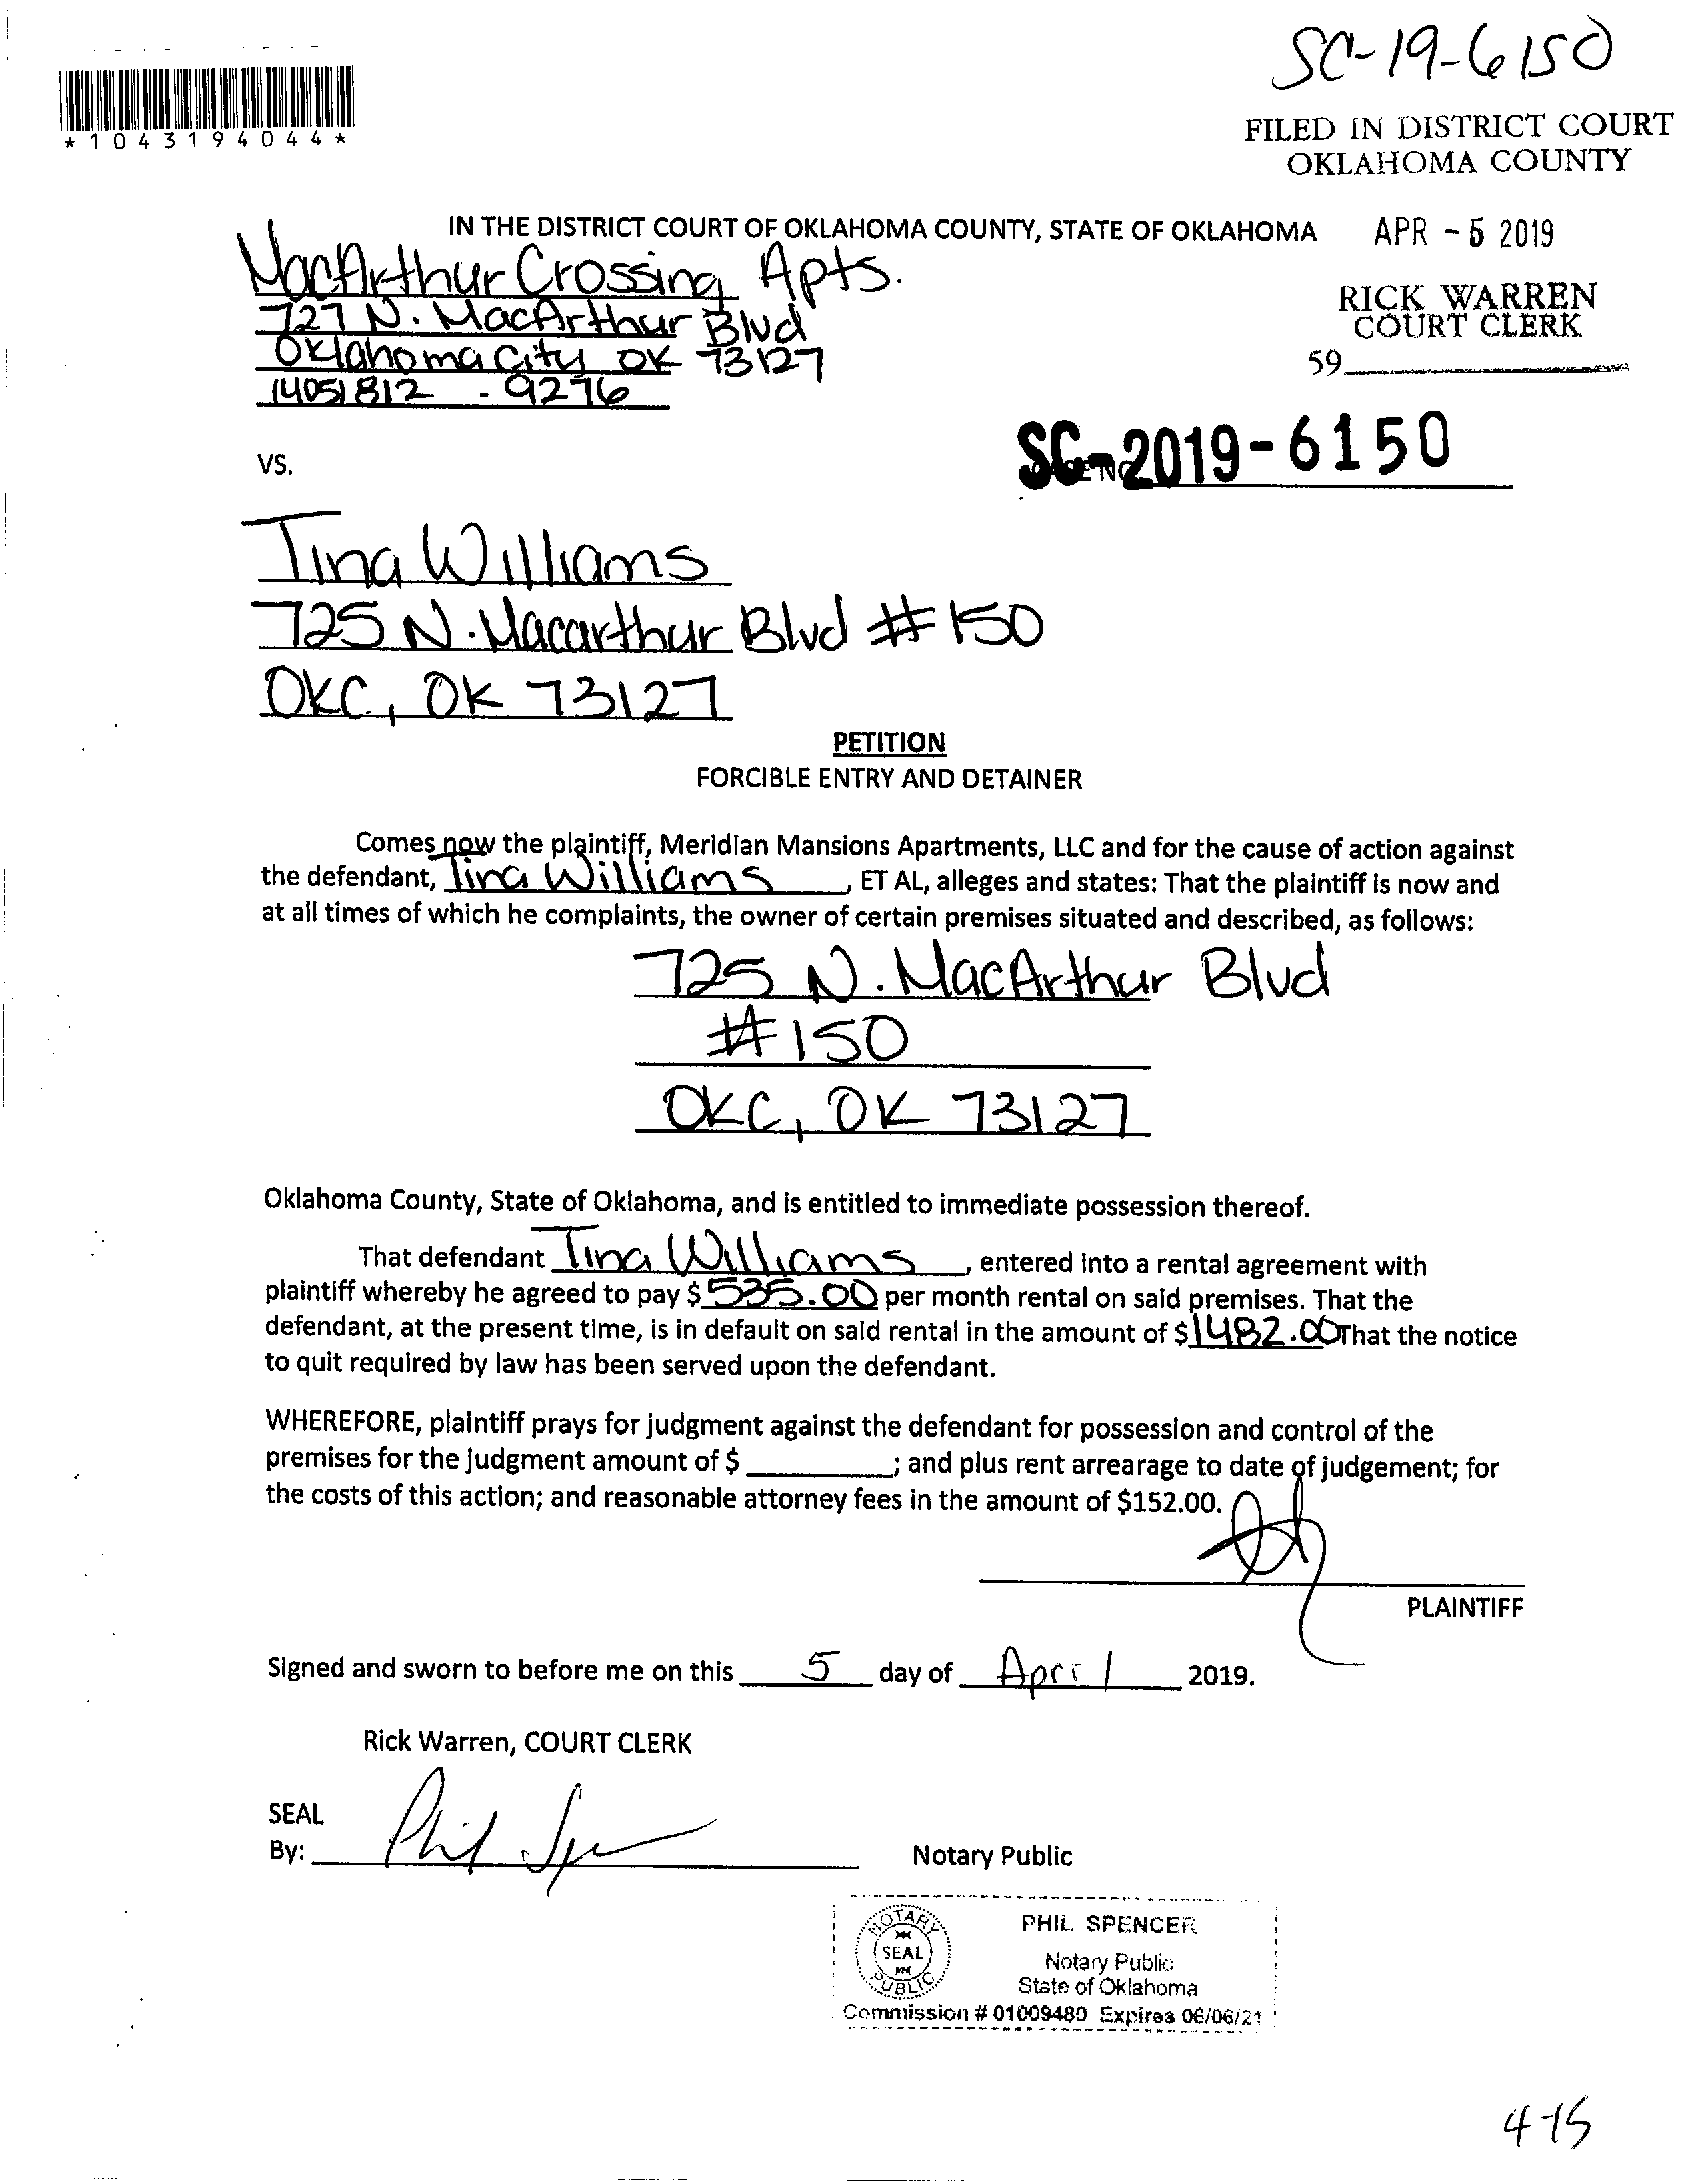 SC-19-6150
*1043194044*
FILED IN DISTRICT COURT
OKLAHOMA COUNTY
IN THE DISTRICT COURT OF OKLAHOMA COUNTY, STATE OF OKLAHOMA
APR - 5 2019
MacArthur Crossing Apts.
727 N. MacArthur Blvd
Oklahoma City OK 73127
(405) 812 - 9276
RICK WARREN
COURT CLERK
59
SC-2019-6150
VS.
Tina Williams
725 N. Macarthur Blvd #150
OKC, OK 73127
PETITION
FORCIBLE ENTRY AND DETAINER
Comes now the plaintiff, Meridian Mansions Apartments, LLC and for the cause of action against
the defendant, Tina Williams, ET AL, alleges and states: That the plaintiff is now and
at all times of which he complaints, the owner of certain premises situated and described, as follows:
725 N. MacArthur Blvd
#150
OKC, OK 73127
Oklahoma County, State of Oklahoma, and is entitled to immediate possession thereof.
That defendant Tina Williams, entered into a rental agreement with
plaintiff whereby he agreed to pay $535.00 per month rental on said premises. That the
defendant, at the present time, is in default on said rental in the amount of $1482.00 That the notice
to quit required by law has been served upon the defendant.
WHEREFORE, plaintiff prays for judgment against the defendant for possession and control of the
premises for the judgment amount of $ ________; and plus rent arrearage to date of judgement; for
the costs of this action; and reasonable attorney fees in the amount of $152.00.
PLAINTIFF
Signed and sworn to before me on this 5 day of April 2019.
Rick Warren, COURT CLERK
SEAL
By: Phil Spencer
Notary Public
NOTARY
SEAL
PUBLIC
PHIL SPENCER
Notary Public
State of Oklahoma
Commission # 01009480 Expires 06/06/21
4-15